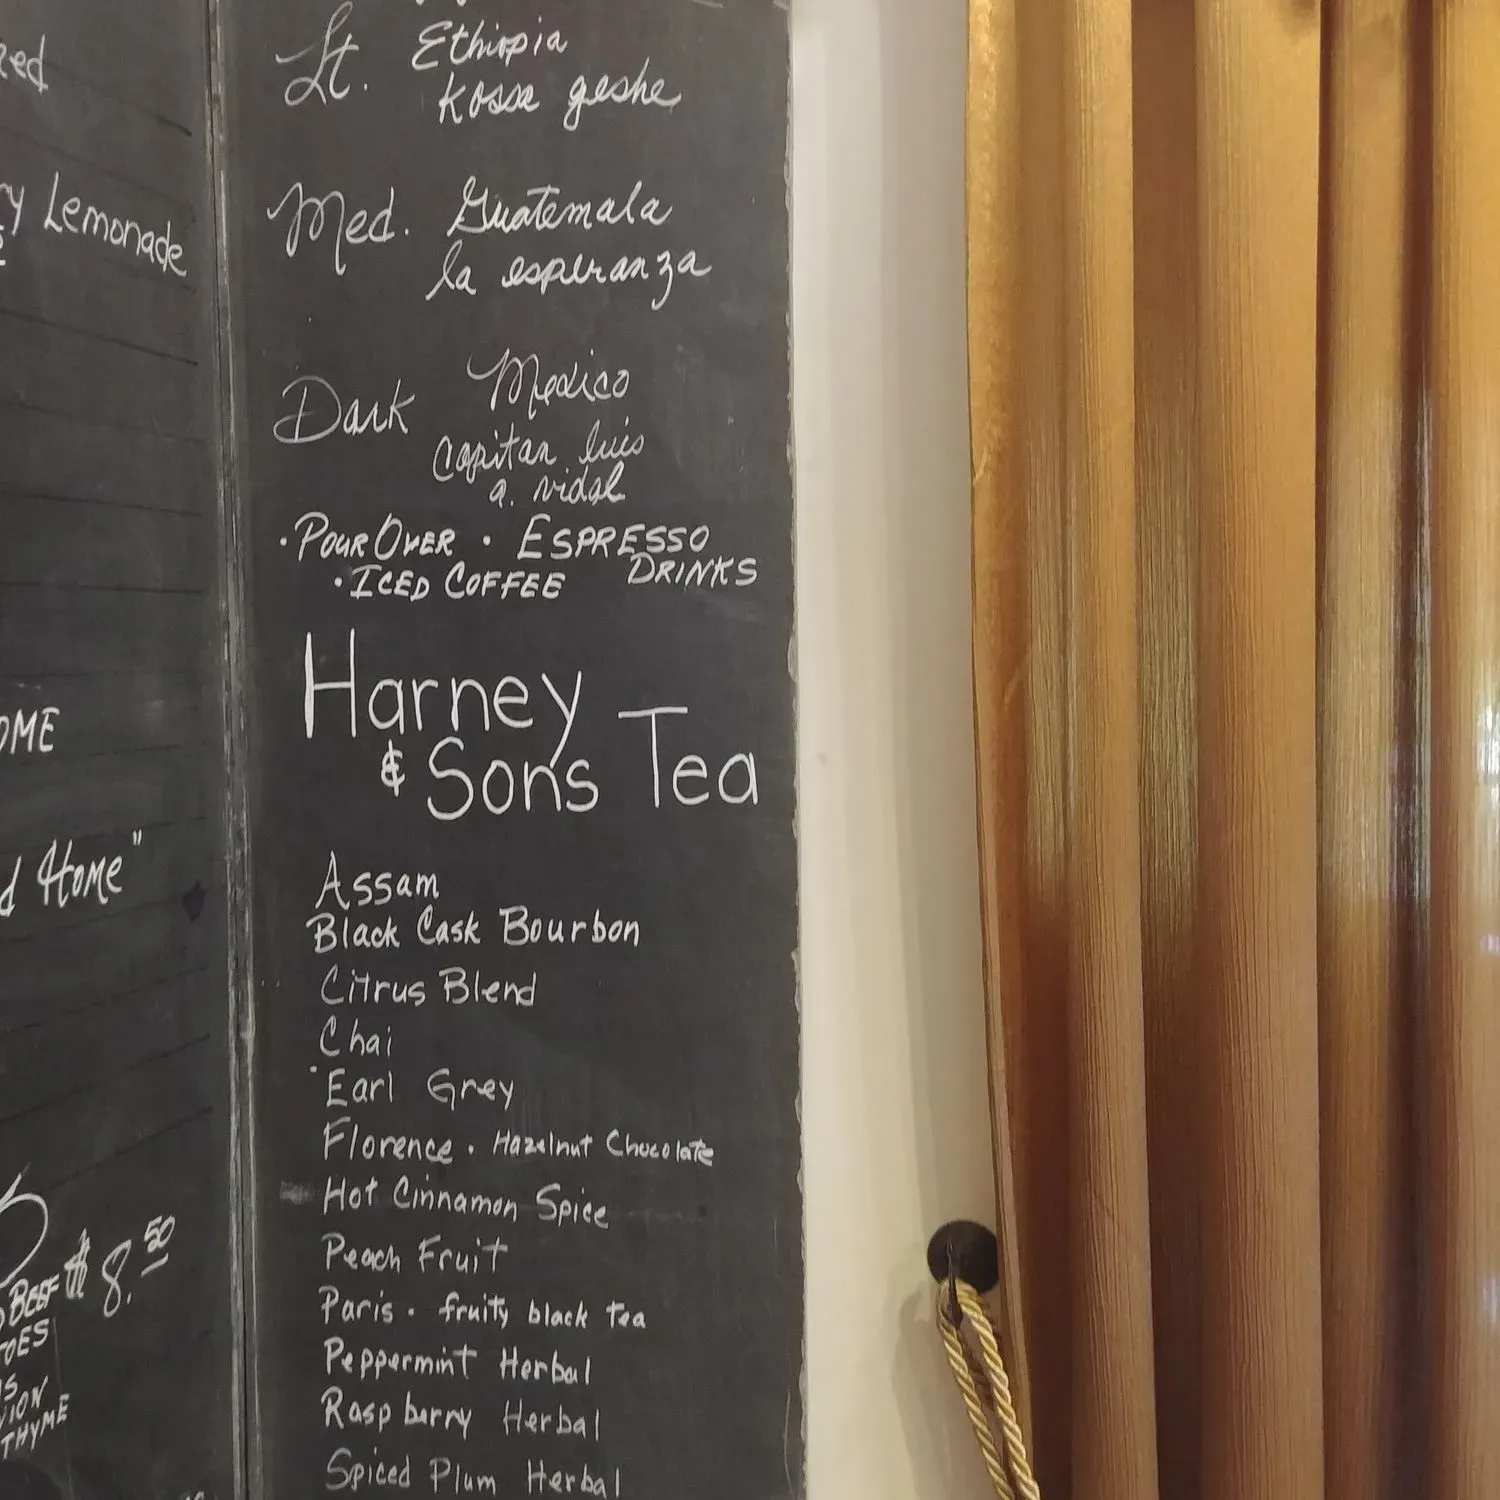 Lemonade
OME
d Home"
$8.50
BEEF
THYME
Lt. Ethiopia
Kossa geshe
Med. Guatemala
la esperanza
Dark Mexico
capitan luis
a. vidal
• Pour Over • Espresso
Drinks
• Iced Coffee
Harney
& Sons Tea
Assam
Black Cask Bourbon
Citrus Blend
Chai
Earl Grey
Florence • Hazelnut Chocolate
Hot Cinnamon Spice
Peach Fruit
Paris • fruity black tea
Peppermint Herbal
Raspberry Herbal
Spiced Plum Herbal